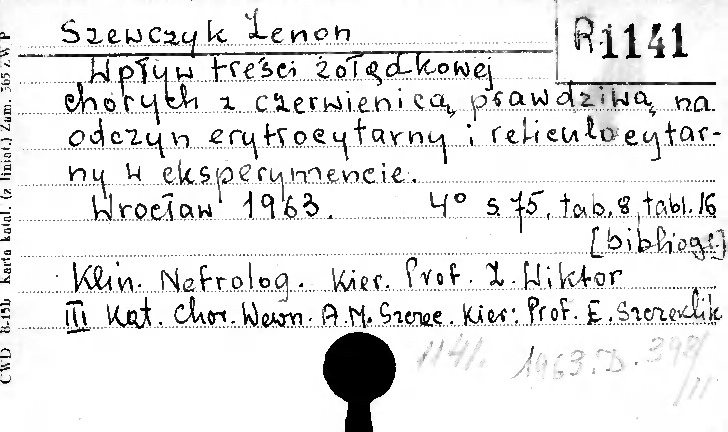 Szewczyk Zenon
R.1141
Wpływ treści żołądkowej
chorych z czerwienicą prawdziwą na
odczyn erytrocytarny i reticulocytar-
ny w eksperymencie.
Wrocław 1963. 4° s. 75, tab. 8, tabl. 16
[bibliogr.]
Klin. Nefrolog. Kier. Prof. Z. Wiktor
III Kat. Chor. Wewn. A.M. Kier: Prof. E. Szczeklik
1141. 1963.D. 398/II
CWD 8-45b Karta katal. (z liniat.) Zam. 565 z W P